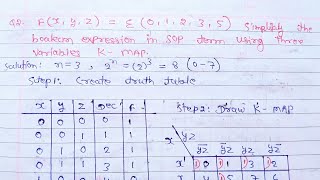 Q2. F(x, y, z) = Σ (0, 1, 2, 3, 5) Simplify the
boolean expression in SOP form using three
variables K-map.
Solution: n=3, 2ⁿ = (2)³ = 8 (0-7)
Step1: Create truth table
x y z Dec F
0 0 0 0 1
0 0 1 1 1
0 1 0 2 1
0 1 1 3 1
Step2: Draw K-MAP
x yz
y̅z̅ y̅z yz yz̅
x' 1 0 1 1 1 3 1 2
x 4 1 5 7 6